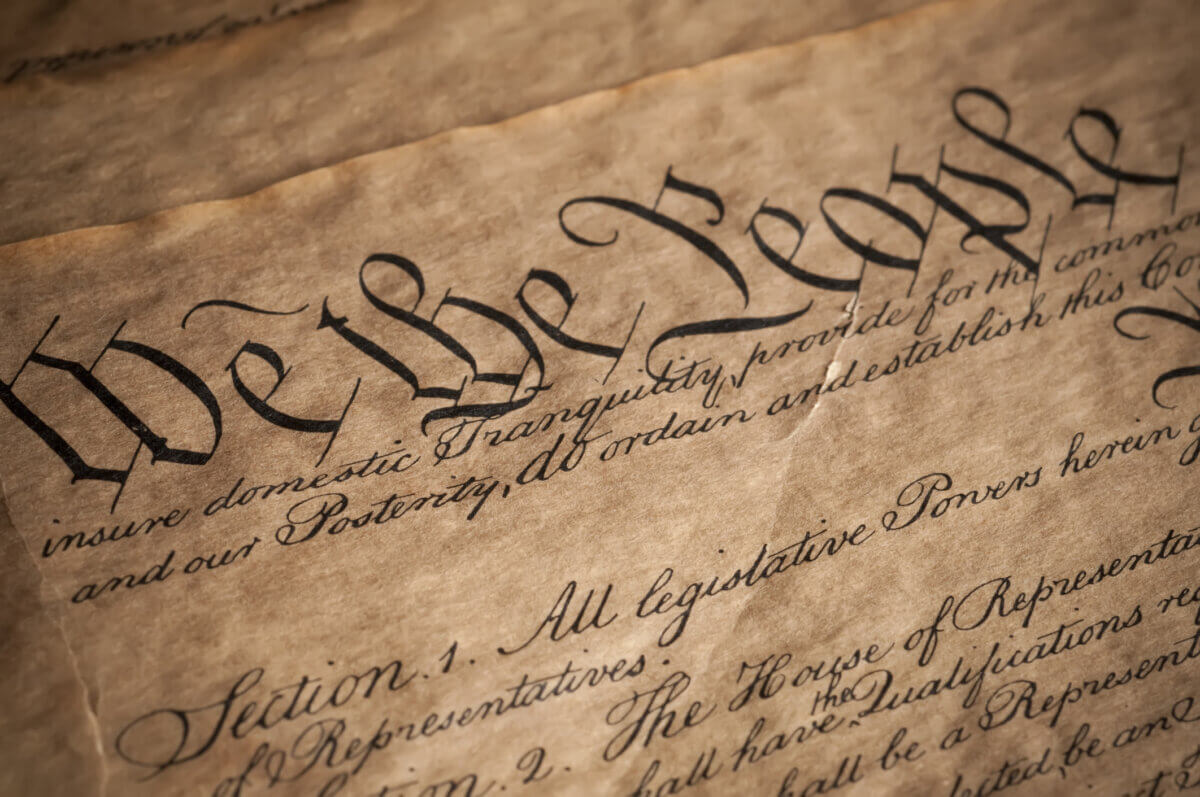 We the People
insure domestic Tranquility, provide for the common
and our Posterity, do ordain and establish this Co
Section. 1. All legislative Powers herein g
of Representatives.
ction. 2. The House of Representa
the
hall have Qualifications re
hall be a Represent
lected, be an